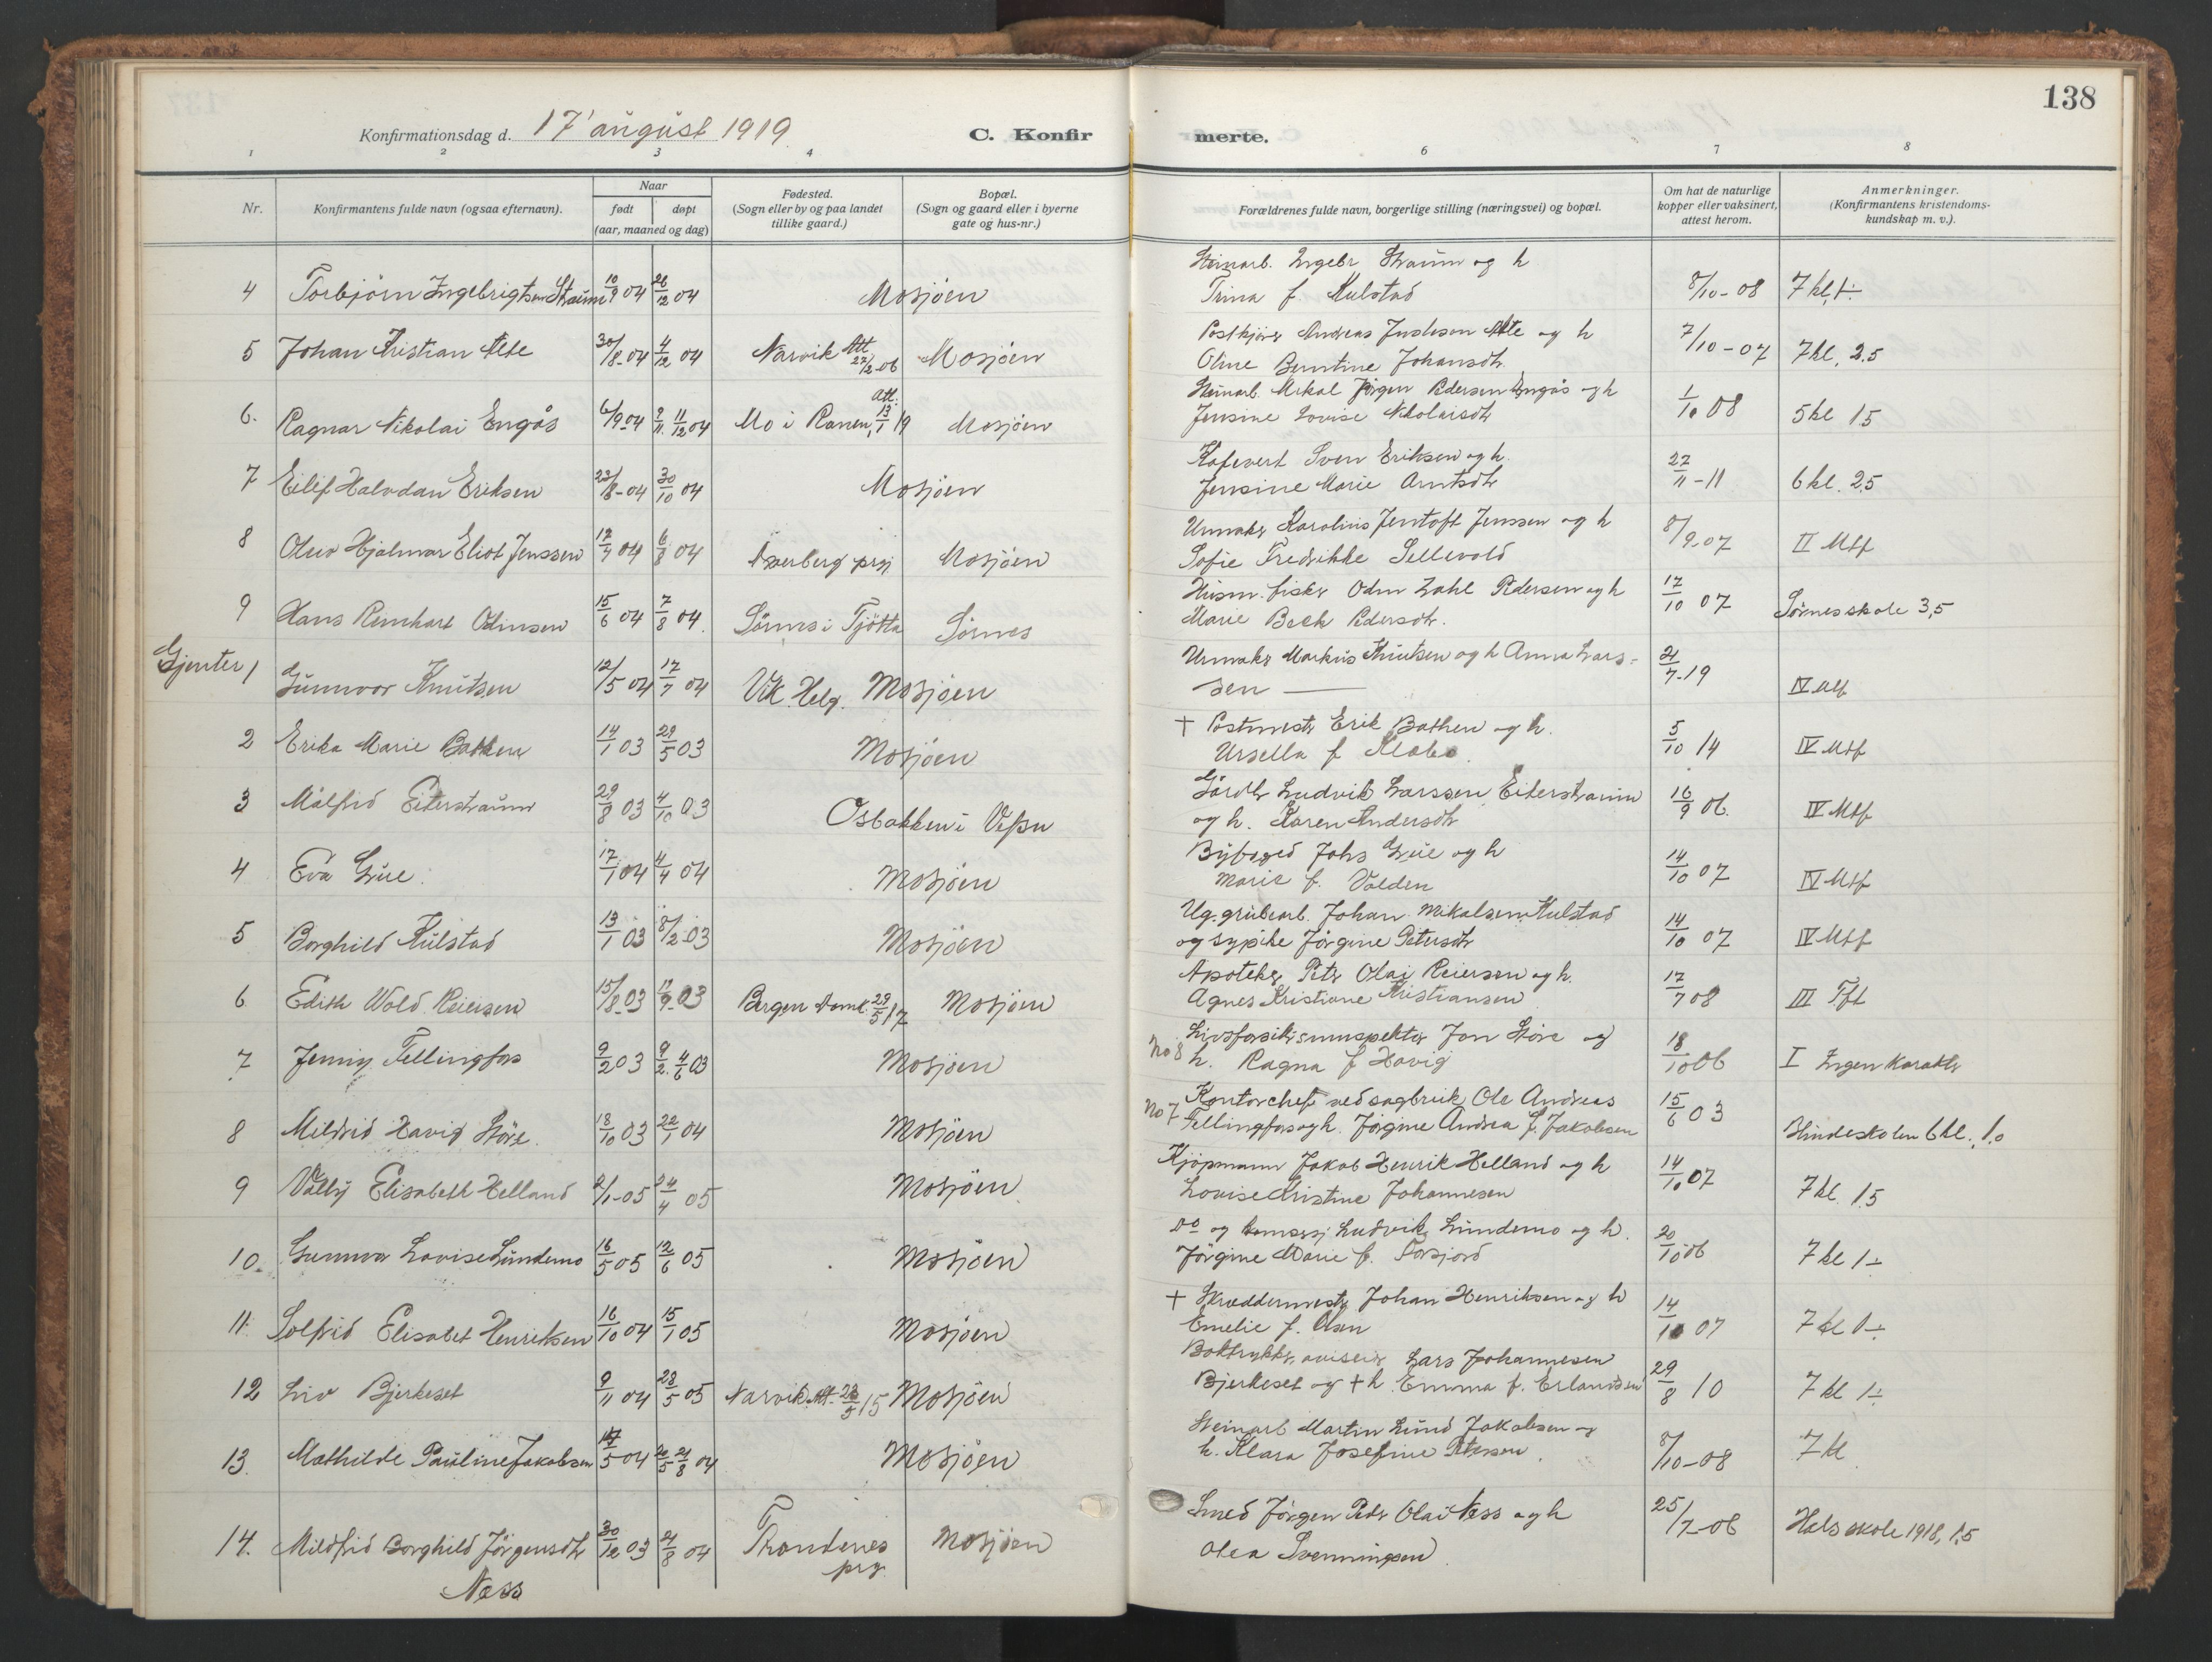 138
Konfirmationsdag d. 17' august 1919
C. Konfir merte.
1 2 3 4 6 7 8
Nr.
Konfirmantens fulde navn (ogsaa efternavn).
Naar
født døpt
(aar, maaned og dag)
Fødested.
(Sogn eller by og paa landet
tillike gaard.)
Bopæl.
(Sogn og gaard eller i byerne
gate og hus-nr.)
Forældrenes fulde navn, borgerlige stilling (næringsvei) og bopæl.
Om hat de naturlige
kopper eller vaksinert,
attest herom.
Anmerkninger.
(Konfirmantens kristendoms-
kundskap m. v.).
Steinarb. Ingebr Straum og h
4 Torbjørn Ingebrigtsen Straum 10/9 04 26/12 04 Mosjøen Trina f. Kulstad 8/10-08 7 kl, 1÷
Postkjører Andreas Justesen Alte og h
5 Johan Kristian Alte 30/8-04 4/12 04 Narvik Att 27/2-06 Mosjøen Oline Berntine Johansdtr. 7/10-07 7kl. 2.5
Steinarb. Mikal Jørgen Pedersen Engås og h
6. Ragnar Nikolai Engås 6/9 04 9/11. 11/12 04 Mo i Ranen, Att. 13/1 19 Mosjøen Jensine Lovise Nikolaisdtr 1/10 08 5kl 1.5
Kafevert Sven Eriksen og h.
7 Eilif Halvdan Eriksen 23/8-04 30/10 04 Mosjøen Jensine Marie Arntsdtr 27/11-11 6kl. 2.5
Urmaker Karolius Jentoft Jenssen og h
8 Oluv Hjalmar Eliot Jenssen 17/7 04 6/8 04 prgj Mosjøen Sofie Fredrikke Sellevold 8/9-07 II Mtf
Husm. fisker Odin Zahl Pedersen og h
9 Hans Reinhart Odinsen 15/6 04 7/8 04. Sørnes i Tjøtta Sørnes Marie Beck Pedersdtr. 17/10 07 Sørnes skole 3,5
Gjenter
Urmaker Markus Knutsen og h Anna Lars-
1 Gunnvor Knutsen 12/5 04 17/7 04 Vik. Helg. Mosjøen sen — 21/7-19 IV Mtf
† Postmester Erik Bathen og h.
2 Erika Marie Bathen 14/1 03 29/5 03 Mosjøen Ursella f. 5/10 14 IV Mtf
Gårdbr Ludvik Larssen Eiterstraum
3 Målfrid Eiterstraum 29/8 03 4/10 03 Osbakken i Vefsn og h. Karen Andersdtr 16/9 06. IV Mtf
Bybogod Johs Grue og h
4 Eva Grue. 17/1 04 4/4 04 Mosjøen Marie f. Volden 14/10 07 IV Mtf
Ug. grubearb. Johan Mikalsen Kulstad
5 Borghild Kulstad 13/1 03 8/2 03 Mosjøen og sypike Jørgine Petersdtr 14/10 07 IV Mtf
Apoteker Peter Olai Reiersen og h.
6 Edith Wold Reiersen 15/8-03 13/9-03 Bergen Domk. 29/5 17 Mosjøen Agnes Kristiane Kristiansen 17/7 08 III Tft
No 8 Livsforsikr.sinnspektør Jon Støre og
7 Jenny Fellingfors 9/2 03 9/2. 4/6 03 Mosjøen h. Ragna f Havig 18/10 06 I Ingen karakter
No 7 Kontorchef ved sagbruk Ole Andreas
8 Mildrid Havig Støre. 18/10 03 22/1 04 Mosjøen Fellingfors og h. Jørgine Andrea f. Jakobsen 15/6 03 Hindeskolen 6kl., 1.0
Kjøpmann Jakob Henrik Helland og h
9 Vally Elisabeth Helland 2/1-05 24/4 05 Mosjøen Lovise Kristine Johannesen 14/10 07 7kl. 1.5
Do og Ludvik Lundemo og h.
10. Gunnva Lovise Lundemo 16/5 05 12/6 05 Mosjøen Jørgine Marie f. Forsjord 20/10 06 7 kl 1÷
† Skræddermester Johan Henriksen og h
11. Solfrid Elisabet Henriksen 16/10 04 15/1 05 Mosjøen Emelie f. Olsen 14/10 07 7 kl 1÷
Boktrykker, Lars Johannesen
12 Liv Bjerkeset 9/11 04 28/5 05 Narvik Att. 28/5 15 Mosjøen Bjerkeset og † h. Emma f. Erlandsen 29/8 10 7 kl 1÷
Steinarb Martin Lund Jakobsen og
13. Mathilde Pauline Jakobsen 17/5 04 20/5 21/8 04 Mosjøen h. Klara Josefine Petersen. 8/10-08 7 kl
Smed Jørgen Peder Olai Ness og h
14. Mildfrid Borghild Jørgensdtr 30/12 03 21/8 04 Trondenes Mosjøen Olea Svenningsen 25/7-06 Hals skole 1918, 1,5
Ness prg.